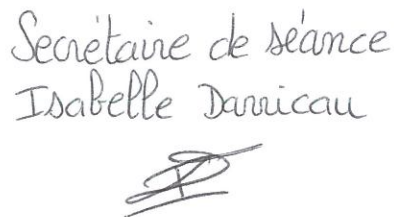 Secrétaire de séance
Isabelle Darricau